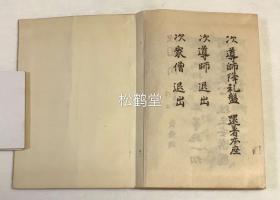 次導師降礼盤 還著本座
次導師退出
次衆僧退出
松鹤堂